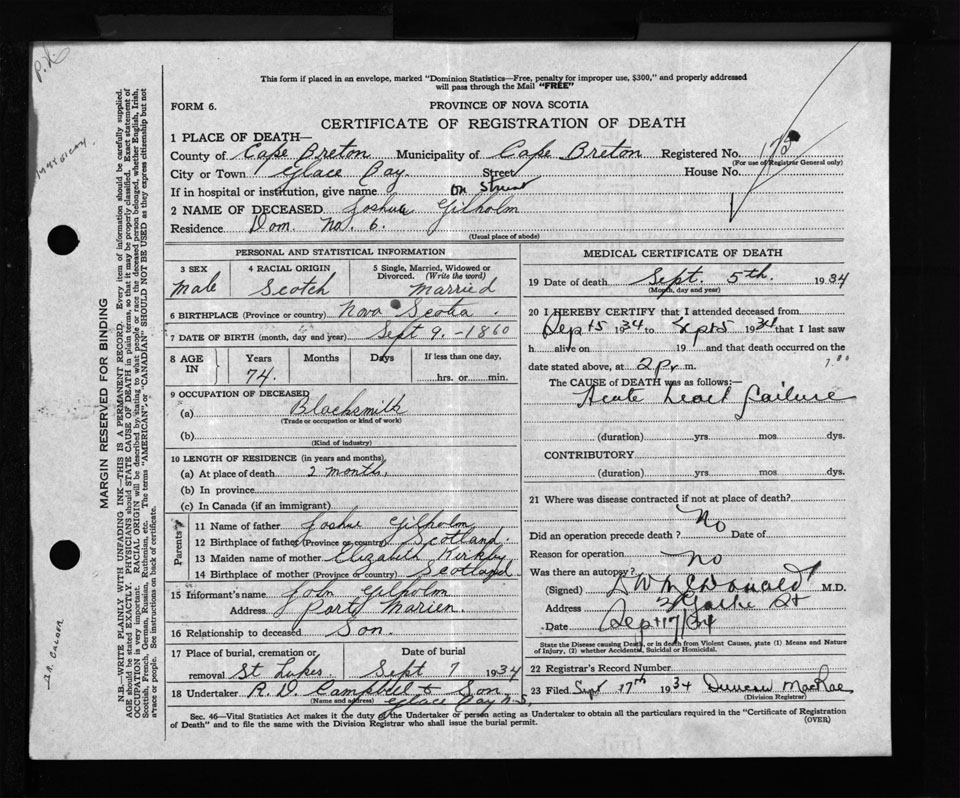 This form if placed in an envelope, marked "Dominion Statistics—Free, penalty for improper use, $300," and properly addressed
will pass through the Mail "FREE"
FORM 6.
PROVINCE OF NOVA SCOTIA
CERTIFICATE OF REGISTRATION OF DEATH
1 PLACE OF DEATH—
County of Cape Breton Municipality of Cape Breton Registered No. 175
(For use of Registrar General only)
City or Town Glace Bay Street House No.
If in hospital or institution, give name on Street
2 NAME OF DECEASED Joshua Gilholm
Residence Dom. No. 6.
(Usual place of abode)
PERSONAL AND STATISTICAL INFORMATION
3 SEX Male
4 RACIAL ORIGIN Scotch
5 Single, Married, Widowed or Divorced. (Write the word) Married
6 BIRTHPLACE (Province or country) Nova Scotia.
7 DATE OF BIRTH (month, day and year) Sept 9. - 1860
8 AGE IN Years Months Days If less than one day,
74. hrs. or min.
9 OCCUPATION OF DECEASED
(a) Blacksmith
(Trade or occupation or kind of work)
(b)
(Kind of industry)
10 LENGTH OF RESIDENCE (in years and months),
(a) At place of death 2 months,
(b) In province
(c) In Canada (if an immigrant)
Parents
11 Name of father Joshua Gilholm
12 Birthplace of father (Province or country) Scotland.
13 Maiden name of mother Elizabeth Kirkby
14 Birthplace of mother (Province or country) Scotland
15 Informant's name John Gilholm
Address Port Marien.
16 Relationship to deceased Son.
17 Place of burial, cremation or Date of burial
removal St Lukes Sept 7 1934
18 Undertaker R. D. Campbell & Son
(Name and address) Glace Bay N.S,
MEDICAL CERTIFICATE OF DEATH
19 Date of death Sept. 5th. 1934
(Month, day and year)
20 I HEREBY CERTIFY that I attended deceased from
Sept 5 1934 to Sept 5 1934 that I last saw
h alive on 19 and that death occurred on the
date stated above, at 2 p. m.
The CAUSE of DEATH was as follows:—
Acute heart failure
(duration) yrs. mos. dys.
CONTRIBUTORY
(duration) yrs. mos. dys.
21 Where was disease contracted if not at place of death?
No
Did an operation precede death? Date of
Reason for operation No
Was there an autopsy?
(Signed) McDonald M.D.
Address St
Date Sept 17/34
State the Disease causing Death, or in death from Violent Causes, state (1) Means and Nature
of Injury, (2) whether Accidental, Suicidal or Homicidal.
22 Registrar's Record Number
23 Filed Sept 17th 1934 Duncan MacRae
(Division Registrar)
Sec. 46—Vital Statistics Act makes it the duty of the Undertaker or person acting as Undertaker to obtain all the particulars required in the "Certificate of Registration
of Death" and to file the same with the Division Registrar who shall issue the burial permit. (OVER)
MARGIN RESERVED FOR BINDING
N.B.—WRITE PLAINLY WITH UNFADING INK—THIS IS A PERMANENT RECORD. Every item of information should be carefully supplied.
AGE should be stated EXACTLY. PHYSICIANS should STATE CAUSE OF DEATH in plain terms, so that it may be properly classified. Exact statement of
OCCUPATION is very important. RACIAL ORIGIN will be described by stating to what people or race the deceased person belonged, whether English, Irish,
Scottish, French, German, Russian, Ruthenian, etc. The terms "AMERICAN" or "CANADIAN" SHOULD NOT BE USED as they express citizenship but not
a race or people. See instructions on back of certificate.